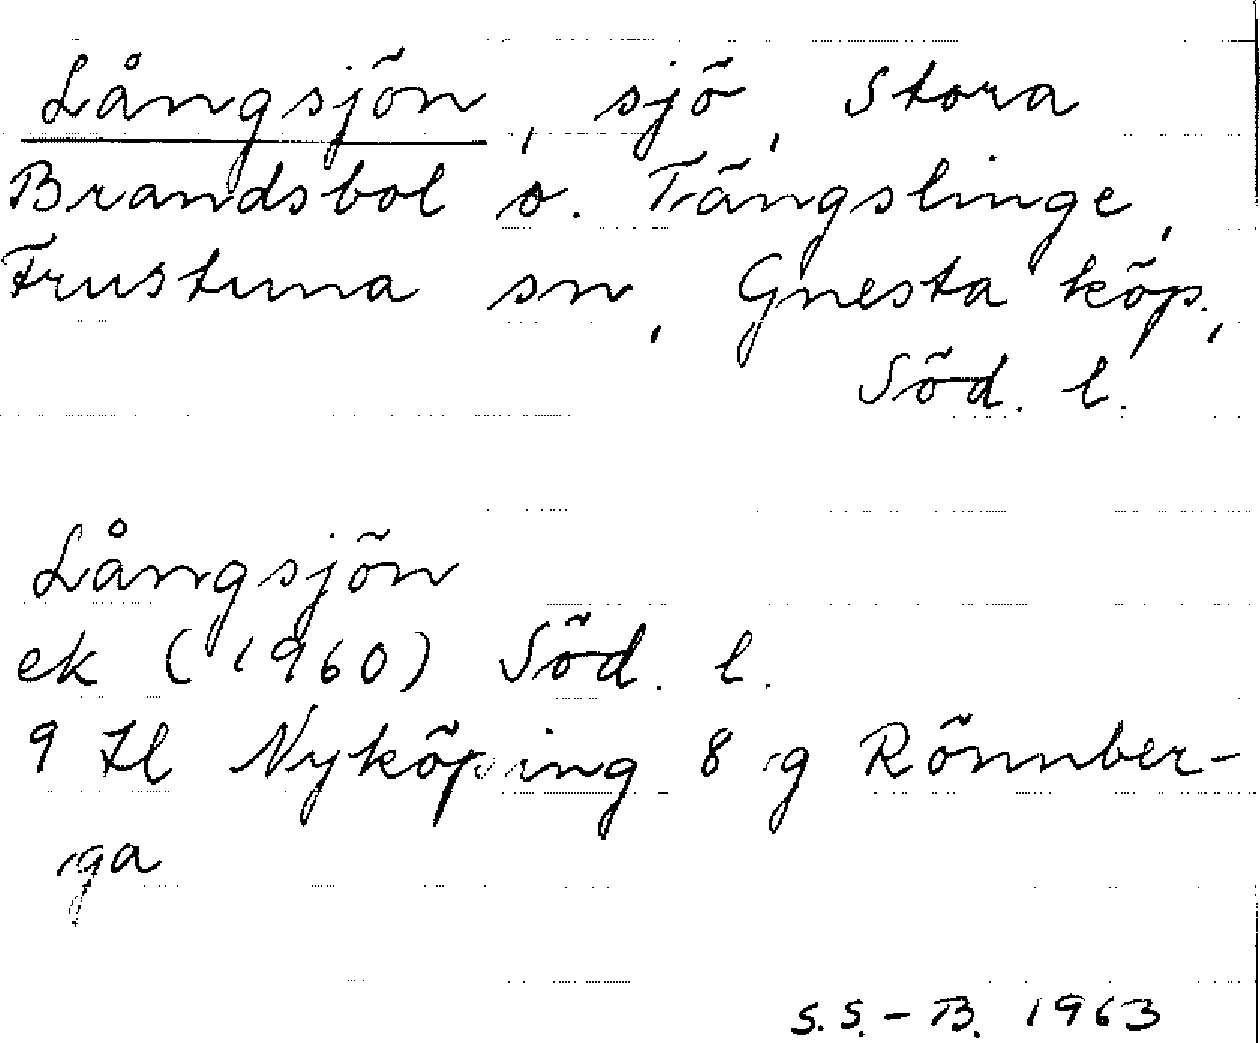 Långsjön, sjö, Stora
Brandsbol o. Tängslinge,
Frustuna sn, Gnesta köp.,
Söd. l.
Långsjön
ek (1960) Söd. l.
9 H Nyköping 8 g Rönnber-
ga
S.S.-B. 1963